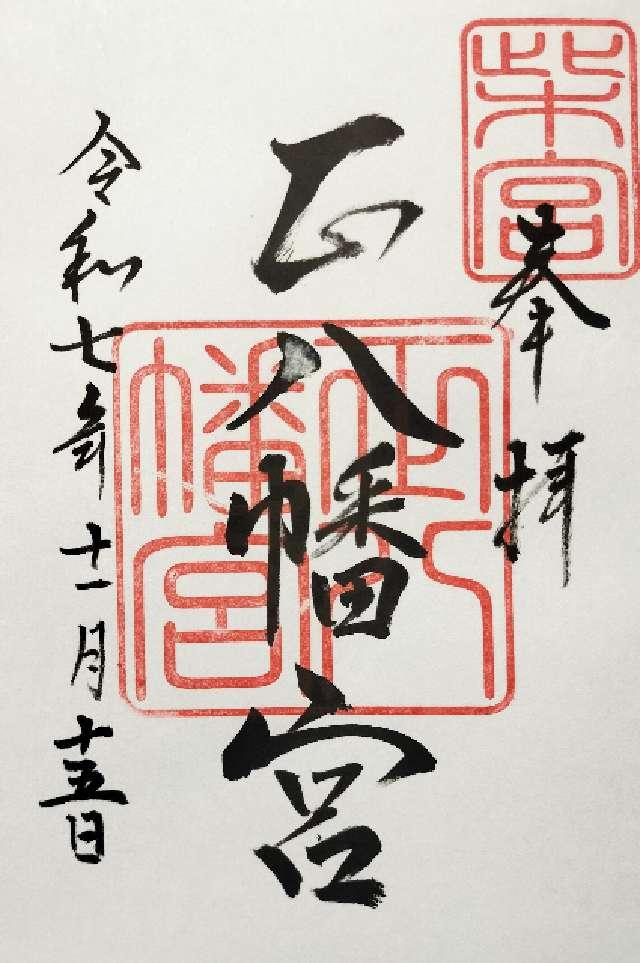 柴宮
奉拝
正八幡宮
正八幡宮
令和七年十一月十五日